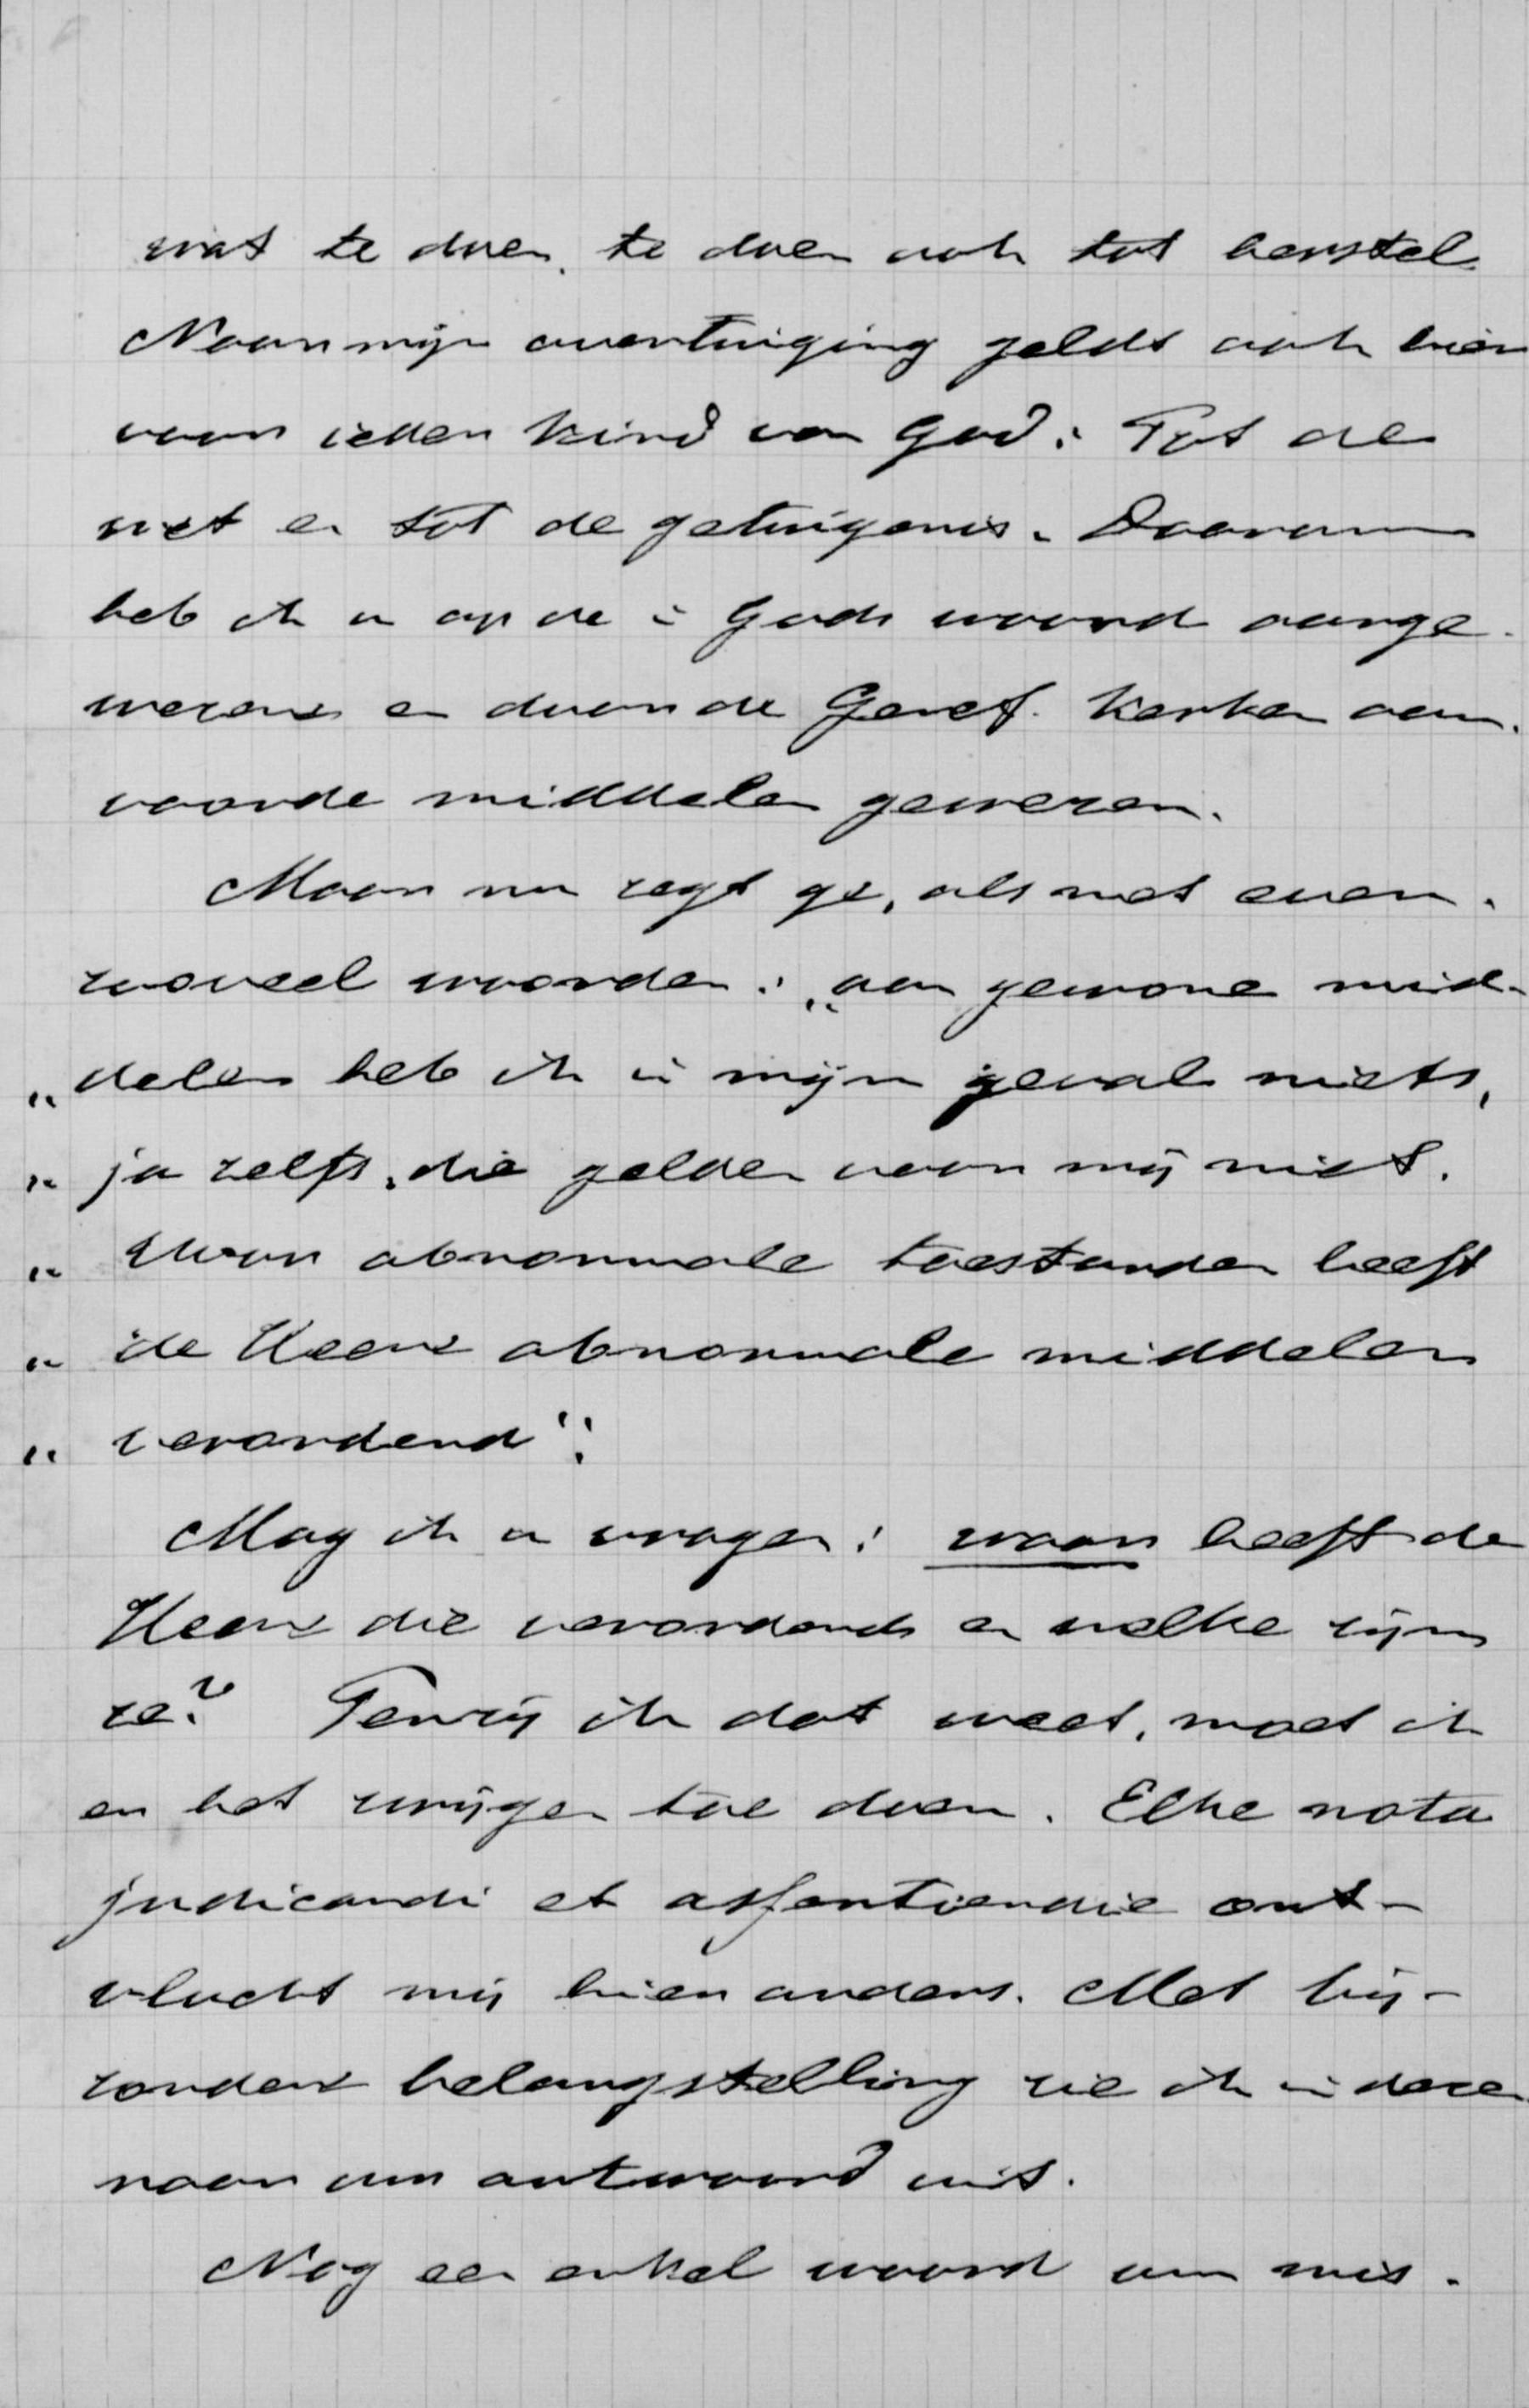 wat te doen, te doen ook tot herstel.
Naar mijn overtuiging geldt ook hier
voor ieder kind van God: Tot de
wet en tot de getuigenis. Daarom
heb ik u op de in Gods woord aange-
wezene en door de Geref. Kerken aan-
vaarde middelen gewezen.
Maar nu zegt ge, als met even-
zooveel woorden: „aan gewone mid-
„delen heb ik in mijn geval niets,
„ja zelfs, die gelden voor mij niet.
„Voor abnormale toestanden heeft
„de Heere abnormale middelen
„verordend".
Mag ik u vragen: waar heeft de
Heere die verordend en welke zijn
ze? Tenzij ik dat weet, moet ik
er het zwijgen toe doen. Elke nota
judicandi et assentiendie ont-
vlucht mij hier anders. Met bij-
zondere belangstelling zie ik in deze
naar uw antwoord uit.
Nog een enkel woord om mis-